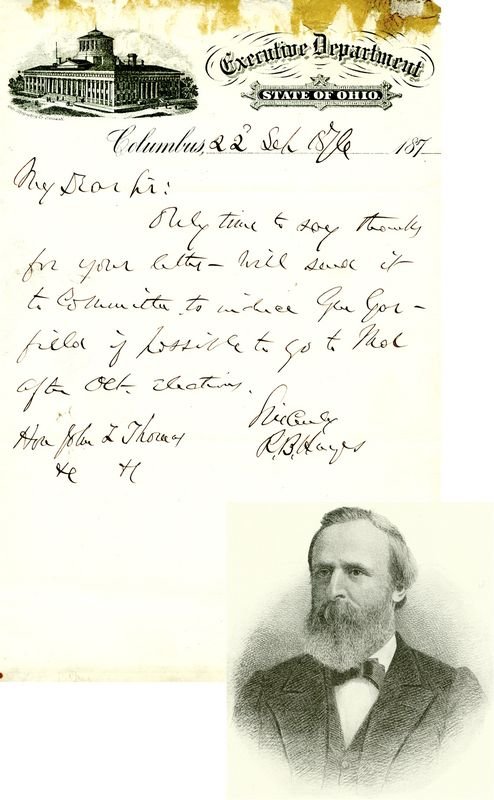 Executive Department
STATE OF OHIO.
Columbus, 22d Sep 1876 187
My Dear Sir:
Only time to say thanks
for your letter – Will send it
to Committee to induce Gen Gar–
field if possible to go to Md
after Oct. elections.
Sincerely
R.B. Hayes
Hon John L Thomas
&c &c